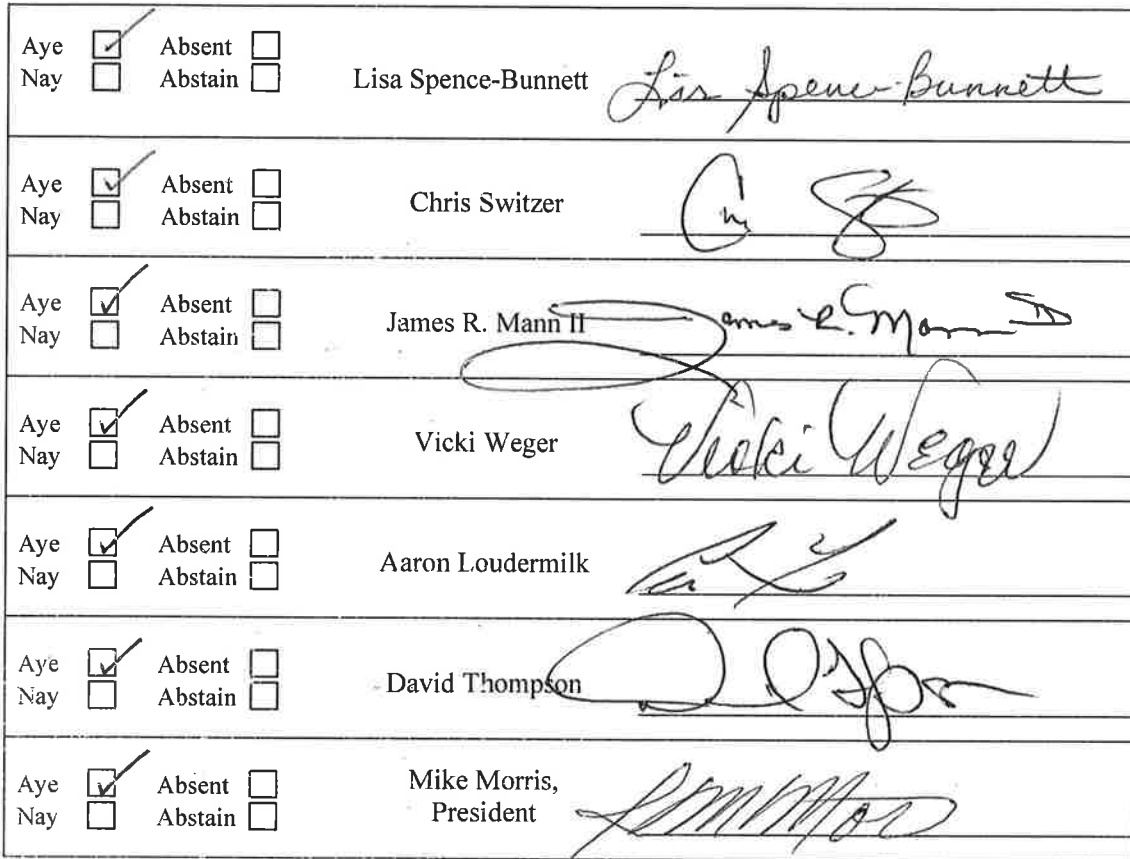 Aye Absent
Nay Abstain
Lisa Spence-Bunnett Lisa Spence-Bunnett
Aye Absent
Nay Abstain
Chris Switzer
Aye Absent
Nay Abstain
James R. Mann II James R. Mann II
Aye Absent
Nay Abstain
Vicki Weger Vicki Weger
Aye Absent
Nay Abstain
Aaron Loudermilk
Aye Absent
Nay Abstain
David Thompson
Aye Absent
Nay Abstain
Mike Morris,
President